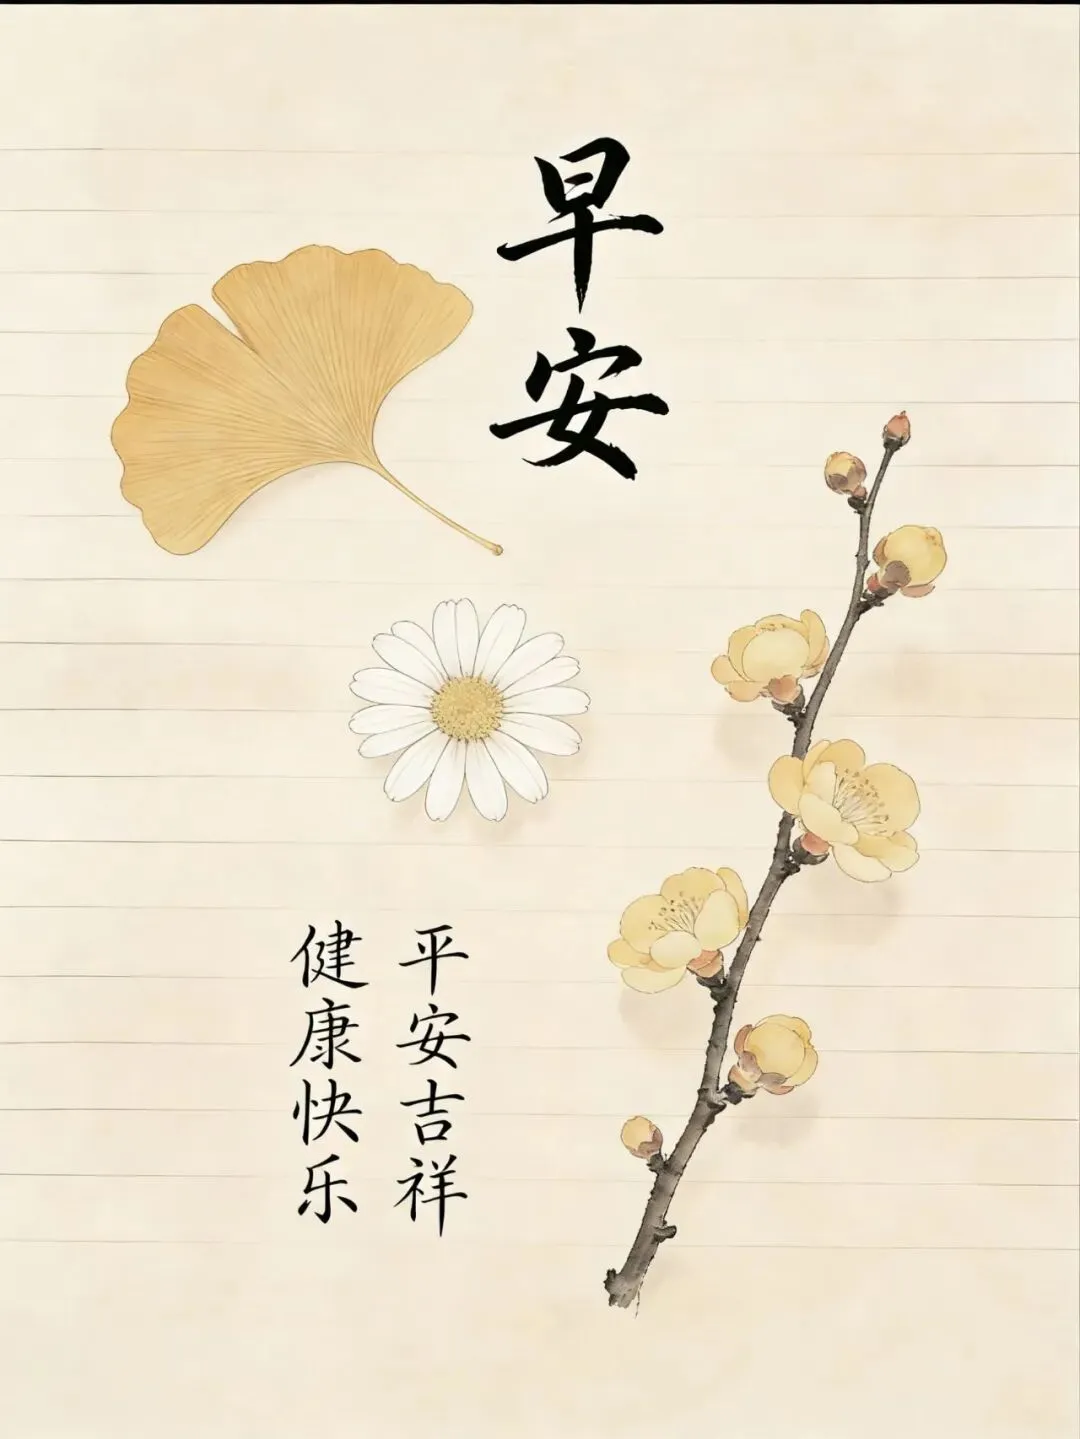 早安
平安吉祥
健康快乐